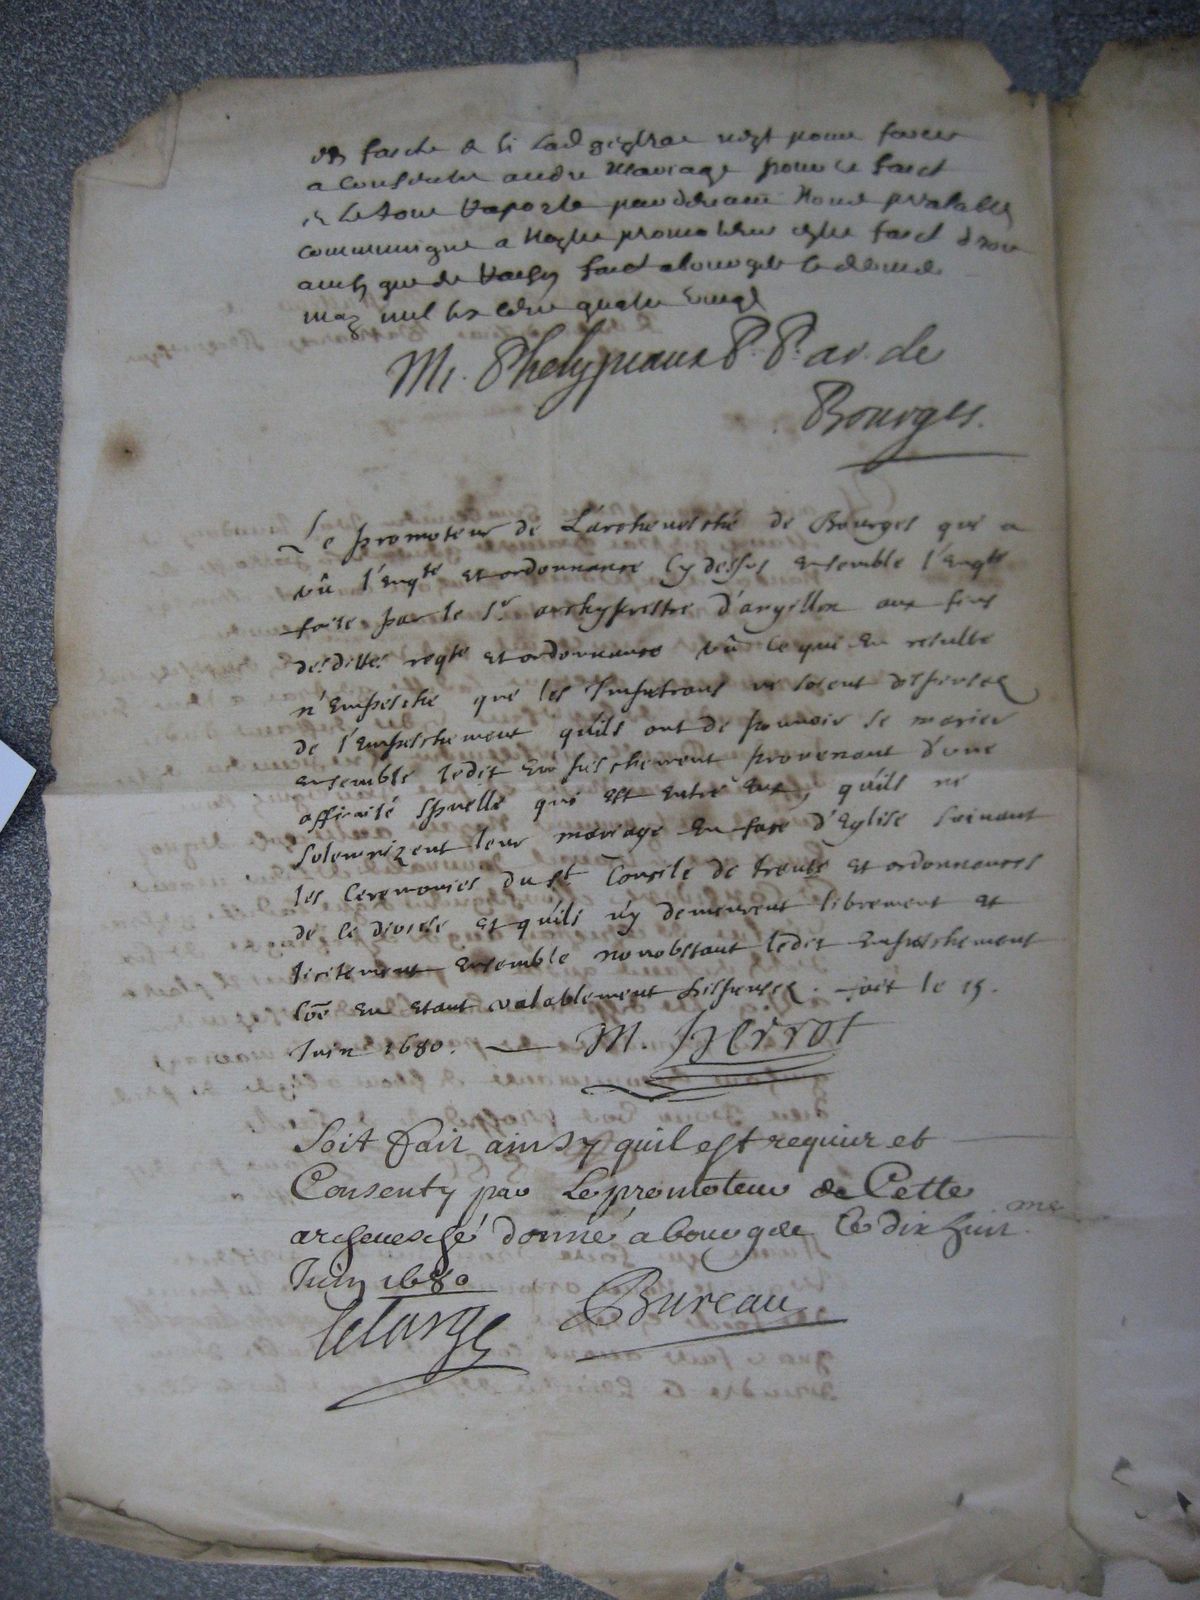 de faict & si lad n'est point forcée
a consentir audit Mariage pour ce faict
& le tout Raporté pardevant Nous prealablement
communiqué a Nostre promoteur estre faict droit
ainsy que de Raison faict a bourges le
may mil six cens quatre vingt
Mi. Phelypeaux P. P. ar. de
Bourges.
Le promoteur de L'archevesché de Bourges qui a
vû l'Enqte Et ordonnance Cy dessus ensemble l'Enqte
faite par le Sr archyprestre d'angillon aux fins
desdittes reqte Et ordonnance vû ce qui En resulte
n'Empesche que les Impetrans ne soient dispensez
de l'Empeschement qu'ils ont de pouvoir se marier
ensemble ledit Empeschement provenant d'une
affinité spuelle qui est entre Eux, qu'ils ne
solemnizent leur mariage En face d'Eglise suivant
les Ceremonies du st Concile de trente Et ordonnances
de ce diocese et qu'ils n'y demeurent librement et
licitement Ensemble nonobstant ledit Empeschement
Cõe En etant valablement dispensez. fait le 15.
Juin 1680. M. Herrot
Soit fait ainsy quil est requier et
Consenty par Le promoteur de Cette
archevesché donné a bourges Le dix huitme
Juin 1680
lelarge Bureau